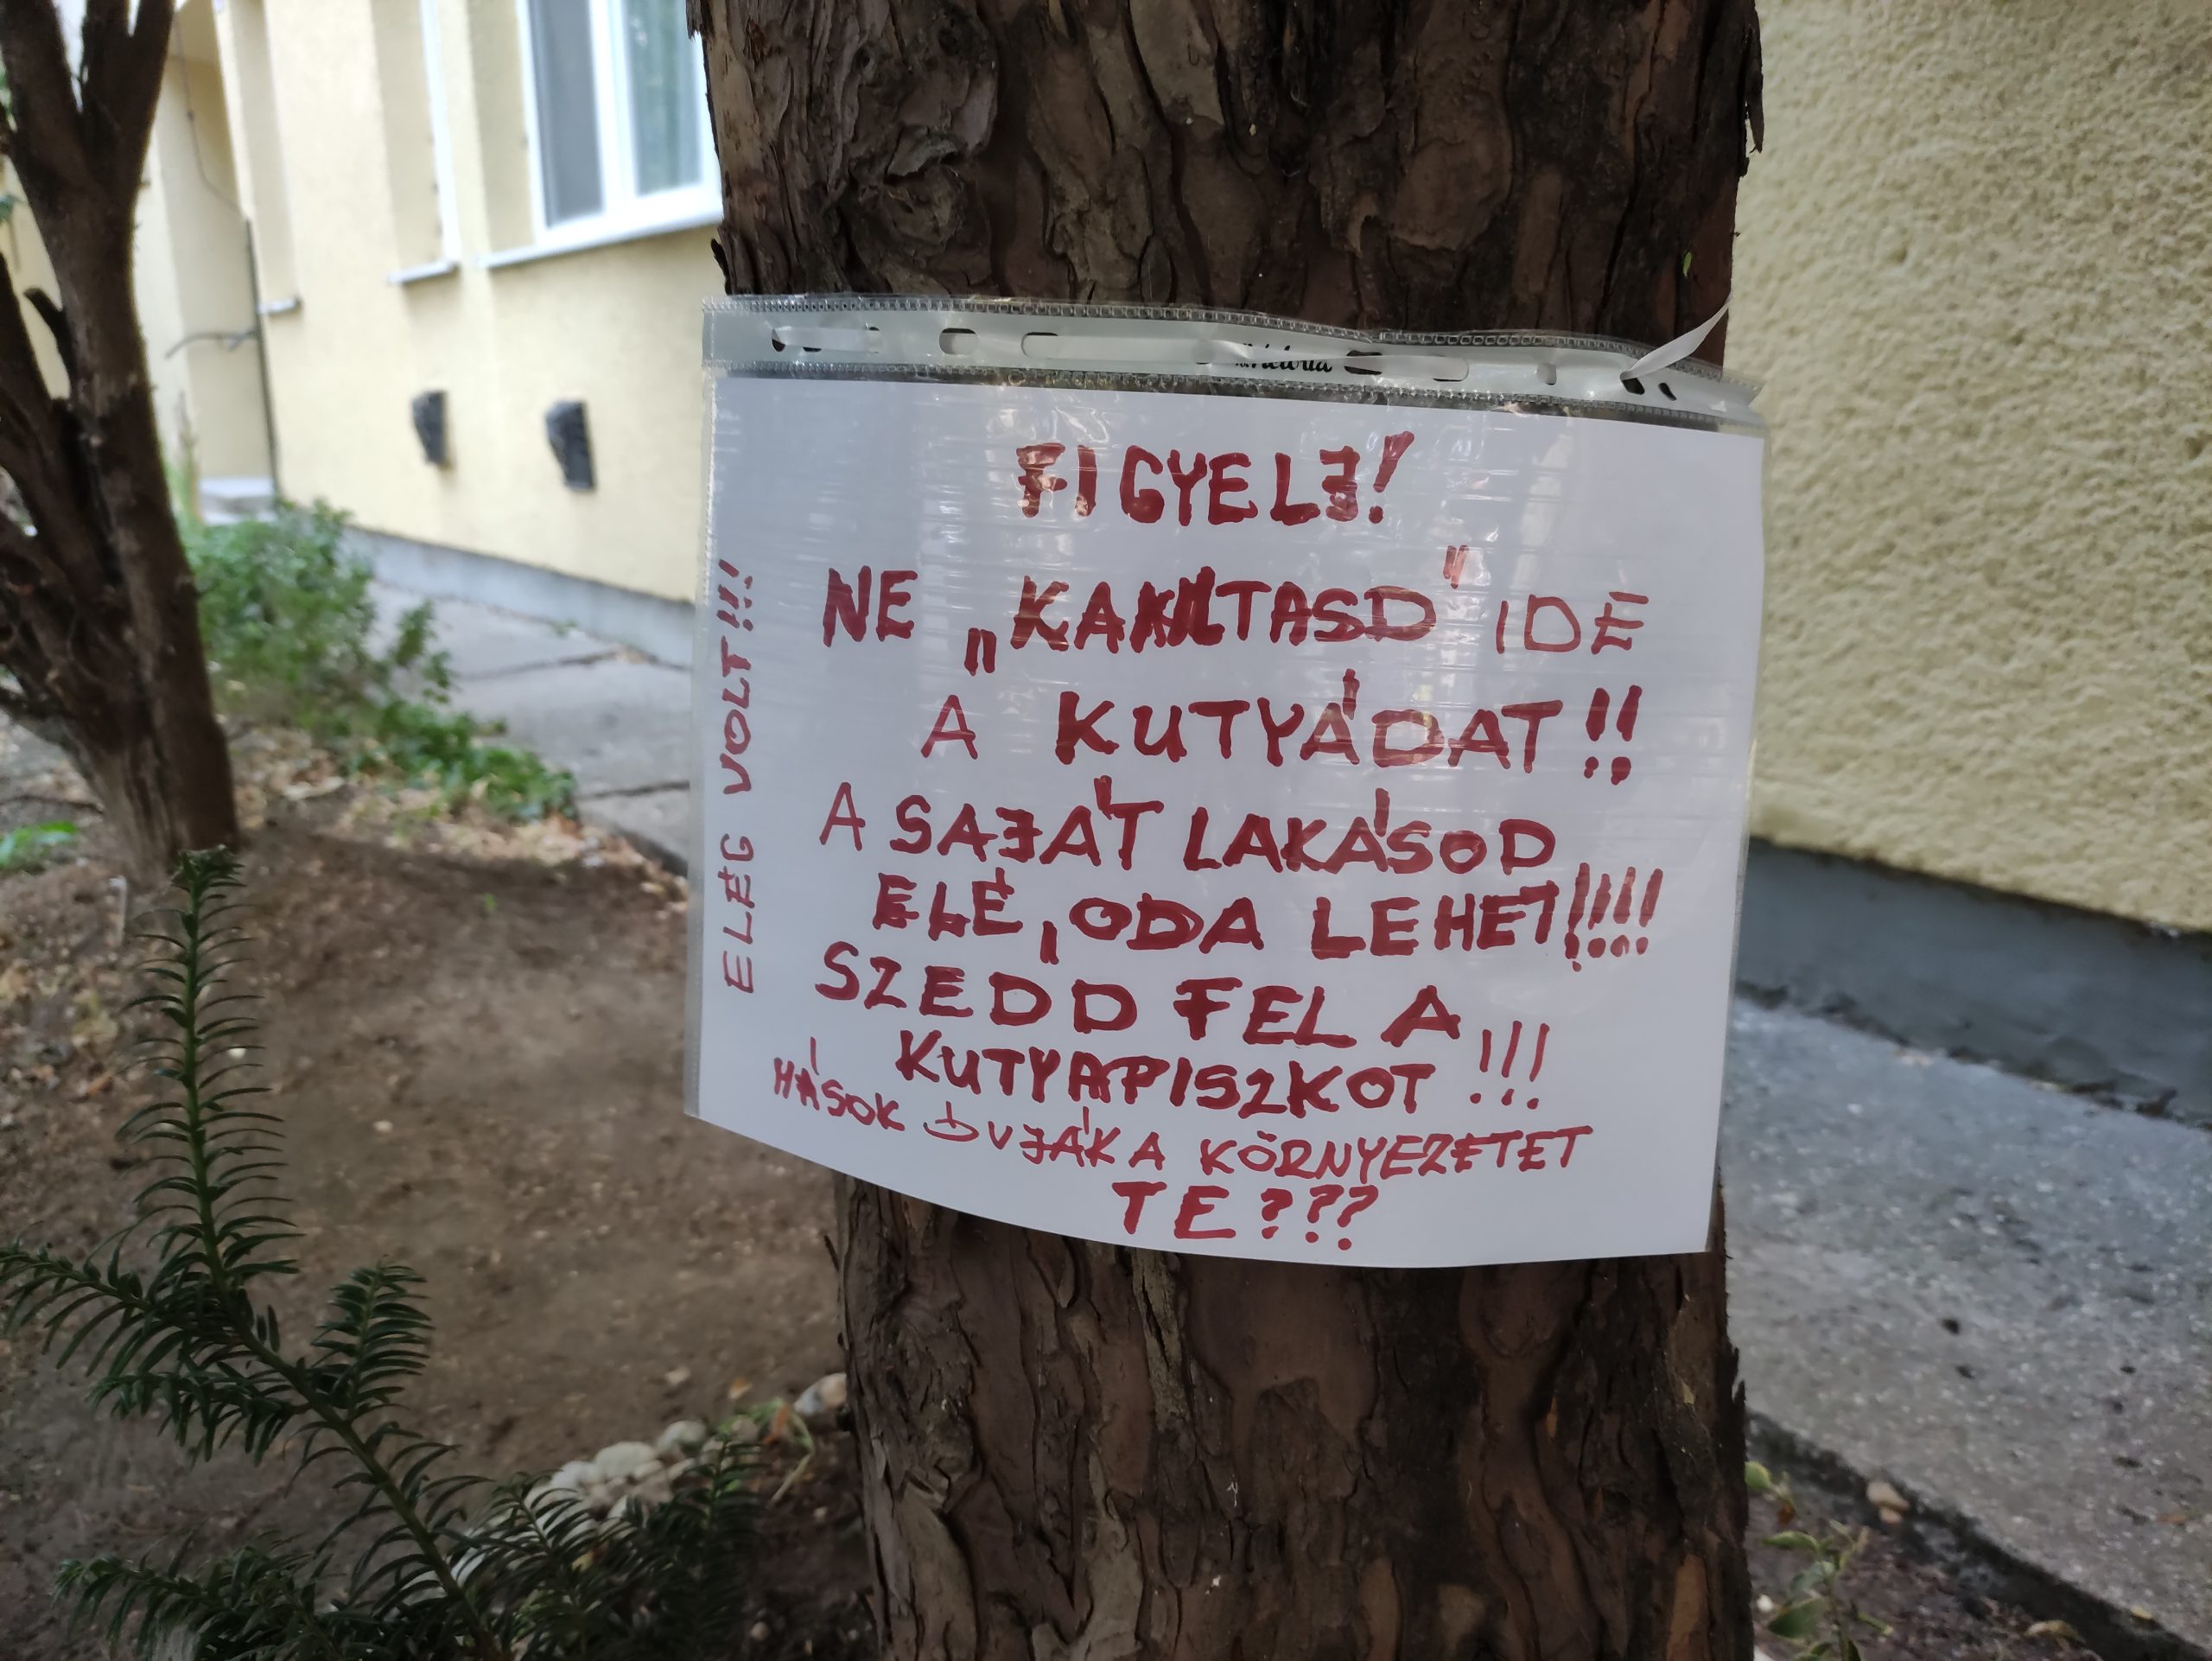 Victoria
FIGYELJ!
NE „KAKILTASD" IDE
A KUTYÁDAT!!
A SAJÁT LAKÁSOD
ELÉ, ODA LEHET!!!!
SZEDD FEL A
KUTYAPISZKOT!!!
MÁSOK ÓVJÁK A KÖRNYEZETET
TE???
ELÉG VOLT!!!